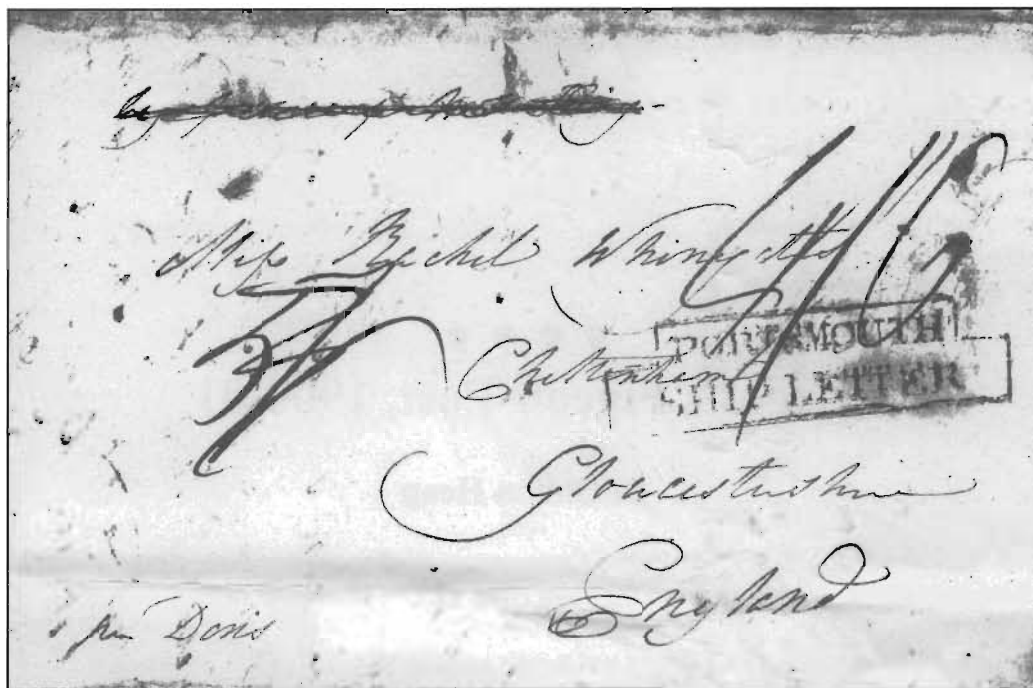 by
Miss Rachel Whinyates
PORTSMOUTH
SHIP LETTER
Cheltenham
Gloucestershire
England
per Doris